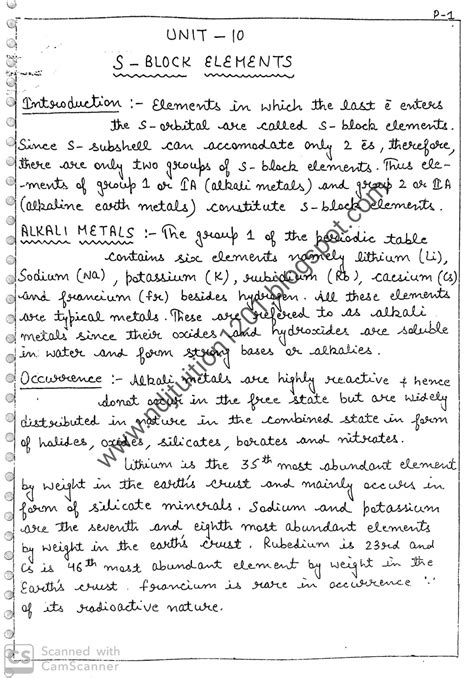 P-1
UNIT - 10
S - BLOCK ELEMENTS
Introduction :- Elements in which the last ē enters
the S-orbital are called S-block elements.
Since S- subshell can accomodate only 2 ēs, therefore,
there are only two groups of S-block elements. Thus ele-
-ments of group 1 or IA (alkali metals) and group 2 or IIA
(alkaline earth metals) constitute S-block elements.
ALKALI METALS :- The group 1 of the periodic table
contains six elements namely lithium (Li),
Sodium (Na), potassium (K), rubidium (Rb), caesium (Cs)
and francium (fr) besides hydrogen. All these elements
are typical metals. These are refered to as alkali
metals since their oxides and hydroxides are soluble
in water and form strong bases or alkalies.
Occurrence :- Alkali metals are highly reactive & hence
donot occur in the free state but are widely
distributed in nature in the combined state in form
of halides, oxides, silicates, borates and nitrates.
Lithium is the 35th most abundant element
by weight in the earth's crust and mainly occurs in
form of silicate minerals. Sodium and potassium
are the seventh and eighth most abundant elements
by weight in the earth's crust. Rubedium is 23rd and
Cs is 46th most abundant element by weight in the
Earth's crust. francium is rare in occurrence ∵
of its radioactive nature.
CS Scanned with
CamScanner